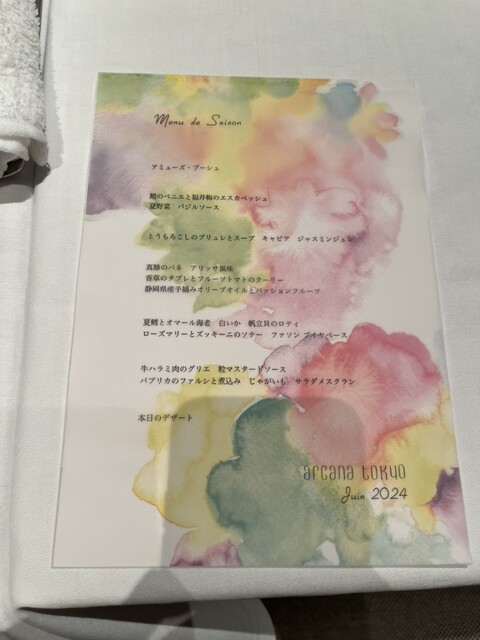 Menu de Saison
アミューズ・ブーシュ
鱧のベニエと福井梅のエスカベッシュ
夏野菜 バジルソース
とうもろこしのブリュレとスープ キャビア ジャスミンジュレ
真鯵のパネ アリッサ風味
香草のタブレとフルーツトマトのクーリー
静岡県産手摘みオリーブオイルとパッションフルーツ
夏鱈とオマール海老 白いか 帆立貝のロティ
ローズマリーとズッキーニのソテー ファソン ブイヤベース
牛ハラミ肉のグリエ 粒マスタードソース
パプリカのファルシと煮込み じゃがいも サラダメスクラン
本日のデザート
arcana tokyo
Juin 2024